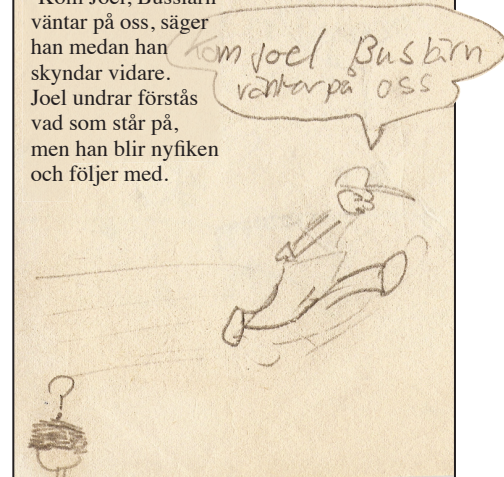 Kom Joel, Busstarn
väntar på oss, säger
han medan han
skyndar vidare.
Joel undrar förstås
vad som står på,
men han blir nyfiken
och följer med.
Kom Joel Bustarn
väntar på oss
?